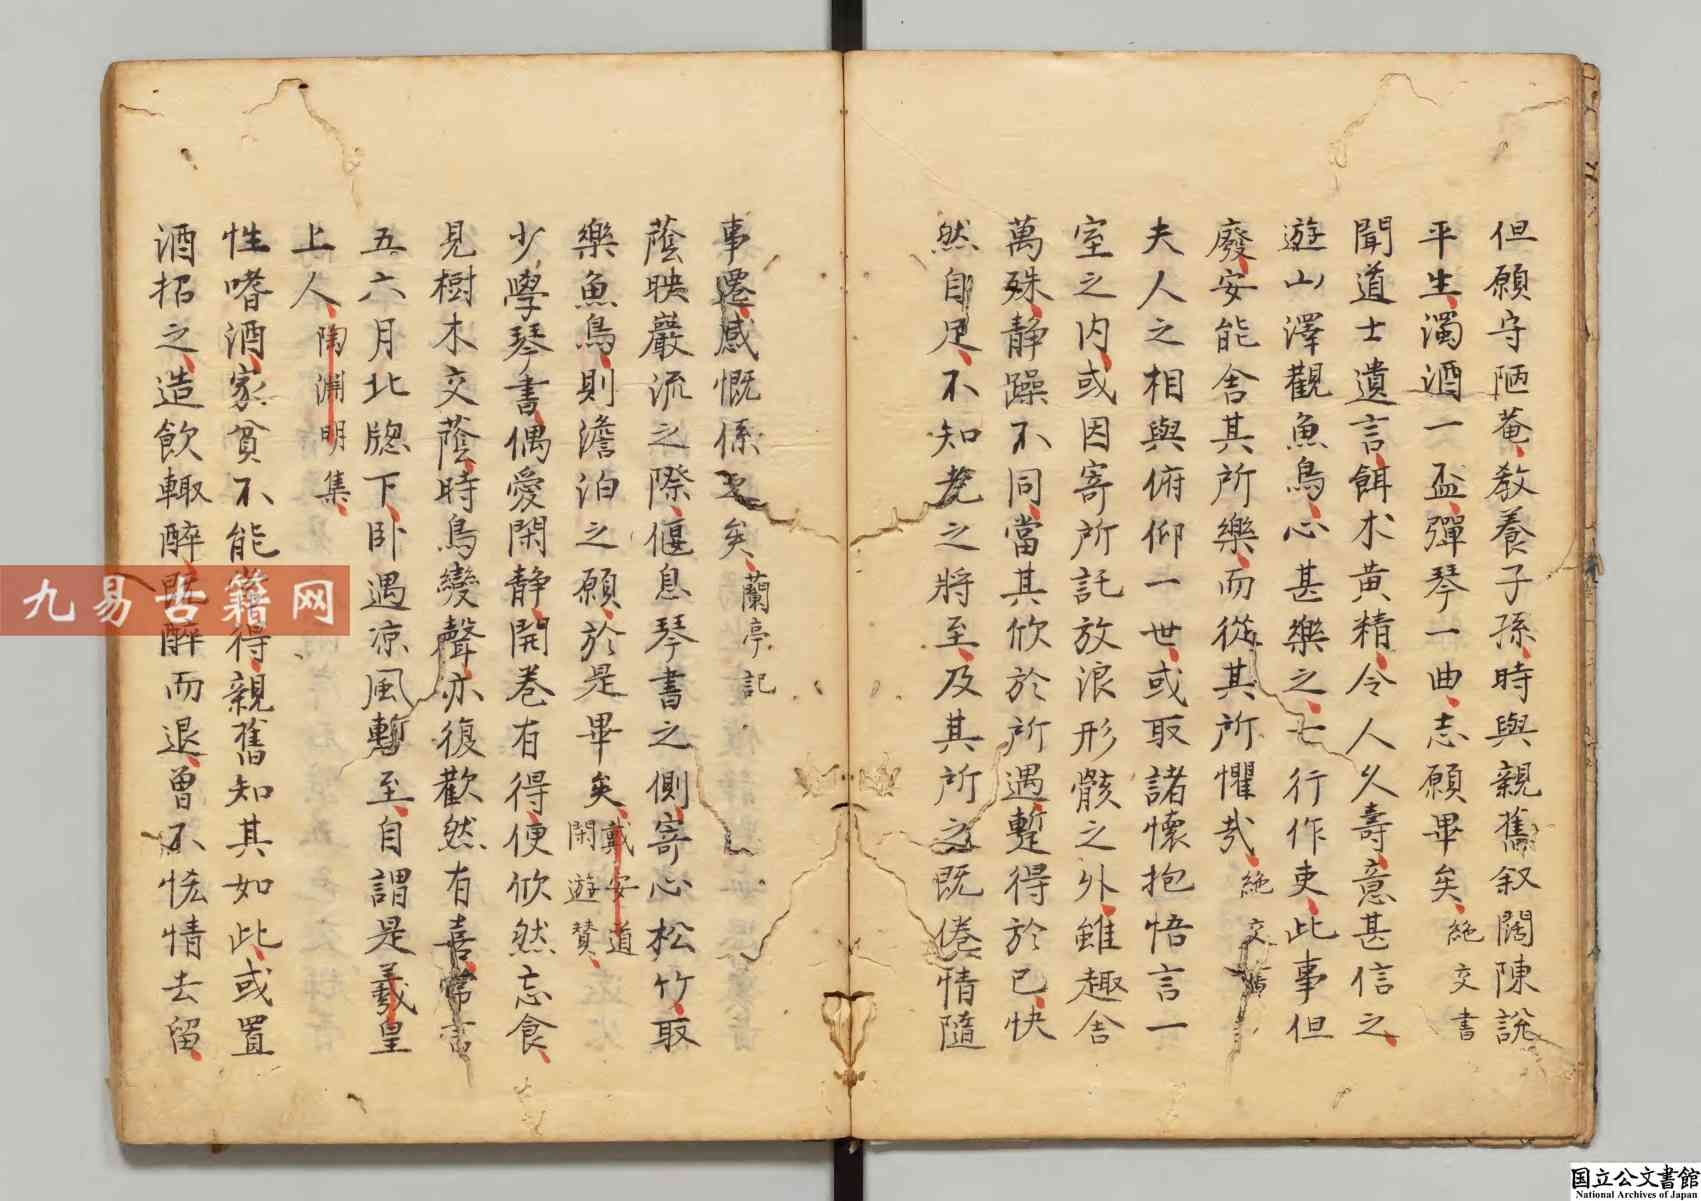 但願守陋菴教養子孫時與親舊叙闊陳說
平生濁酒一盃彈琴一曲志願畢矣絶交書
聞道士遺言餌朮黄精令人久壽意甚信之
遊山澤觀魚鳥心甚樂之七行作吏此事但
廢安能舍其所樂而從其所懼哉絶交書
夫人之相與俯仰一世或取諸懷抱悟言一
室之内或因寄所託放浪形骸之外雖趣舎
萬殊静躁不同當其欣於所遇暫得於已快
然自足不知老之將至及其所之既倦情隨
事遷感慨係之矣蘭亭記
蔭映巖流之際偃息琴書之側寄心松竹取
樂魚鳥則澹泊之願於是畢矣戴安道閑遊賛
少學琴書偶愛閑静開卷有得便欣然忘食
見樹木交蔭時鳥變聲亦復歡然有喜常言
五六月北牕下卧遇凉風暫至自謂是羲皇
上人陶淵明集
性嗜酒家貧不能常得親舊知其如此或置
酒招之造飲輙醉既醉而退曾不恡情去留
九易古籍网
国立公文書館
National Archives of Japan